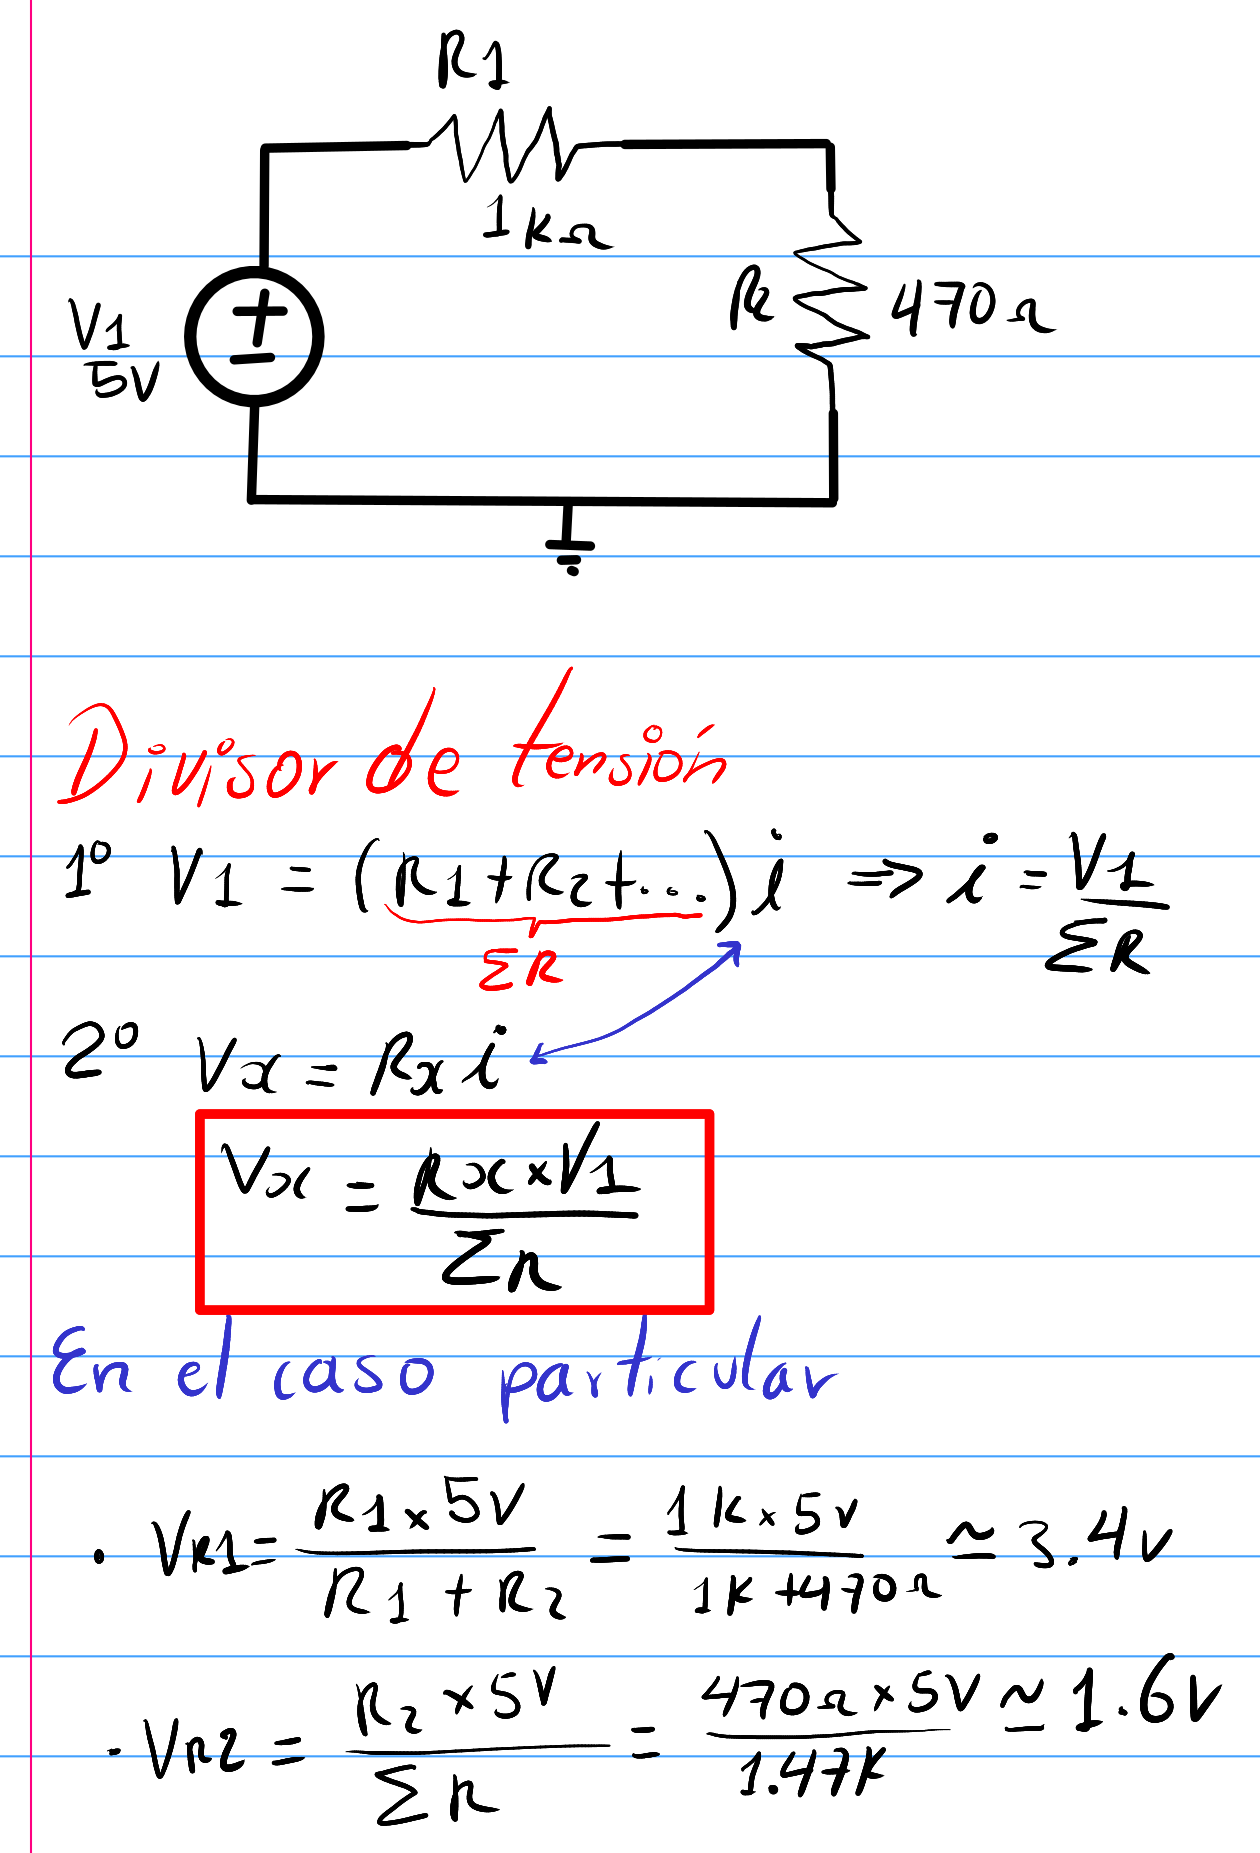 R1
1kΩ
V1
5V
R2
470Ω
Divisor de tensión
1º V1 = (R1+R2+...) i => i = V1/ΣR
ΣR
2º Vx = Rx i
Vx = Rx×V1/ΣR
En el caso particular
· VR1 = R1×5V/R1+R2 = 1K×5V/1K+470Ω ≃ 3.4V
· VR2 = R2×5V/ΣR = 470Ω×5V/1.47K ≃ 1.6V